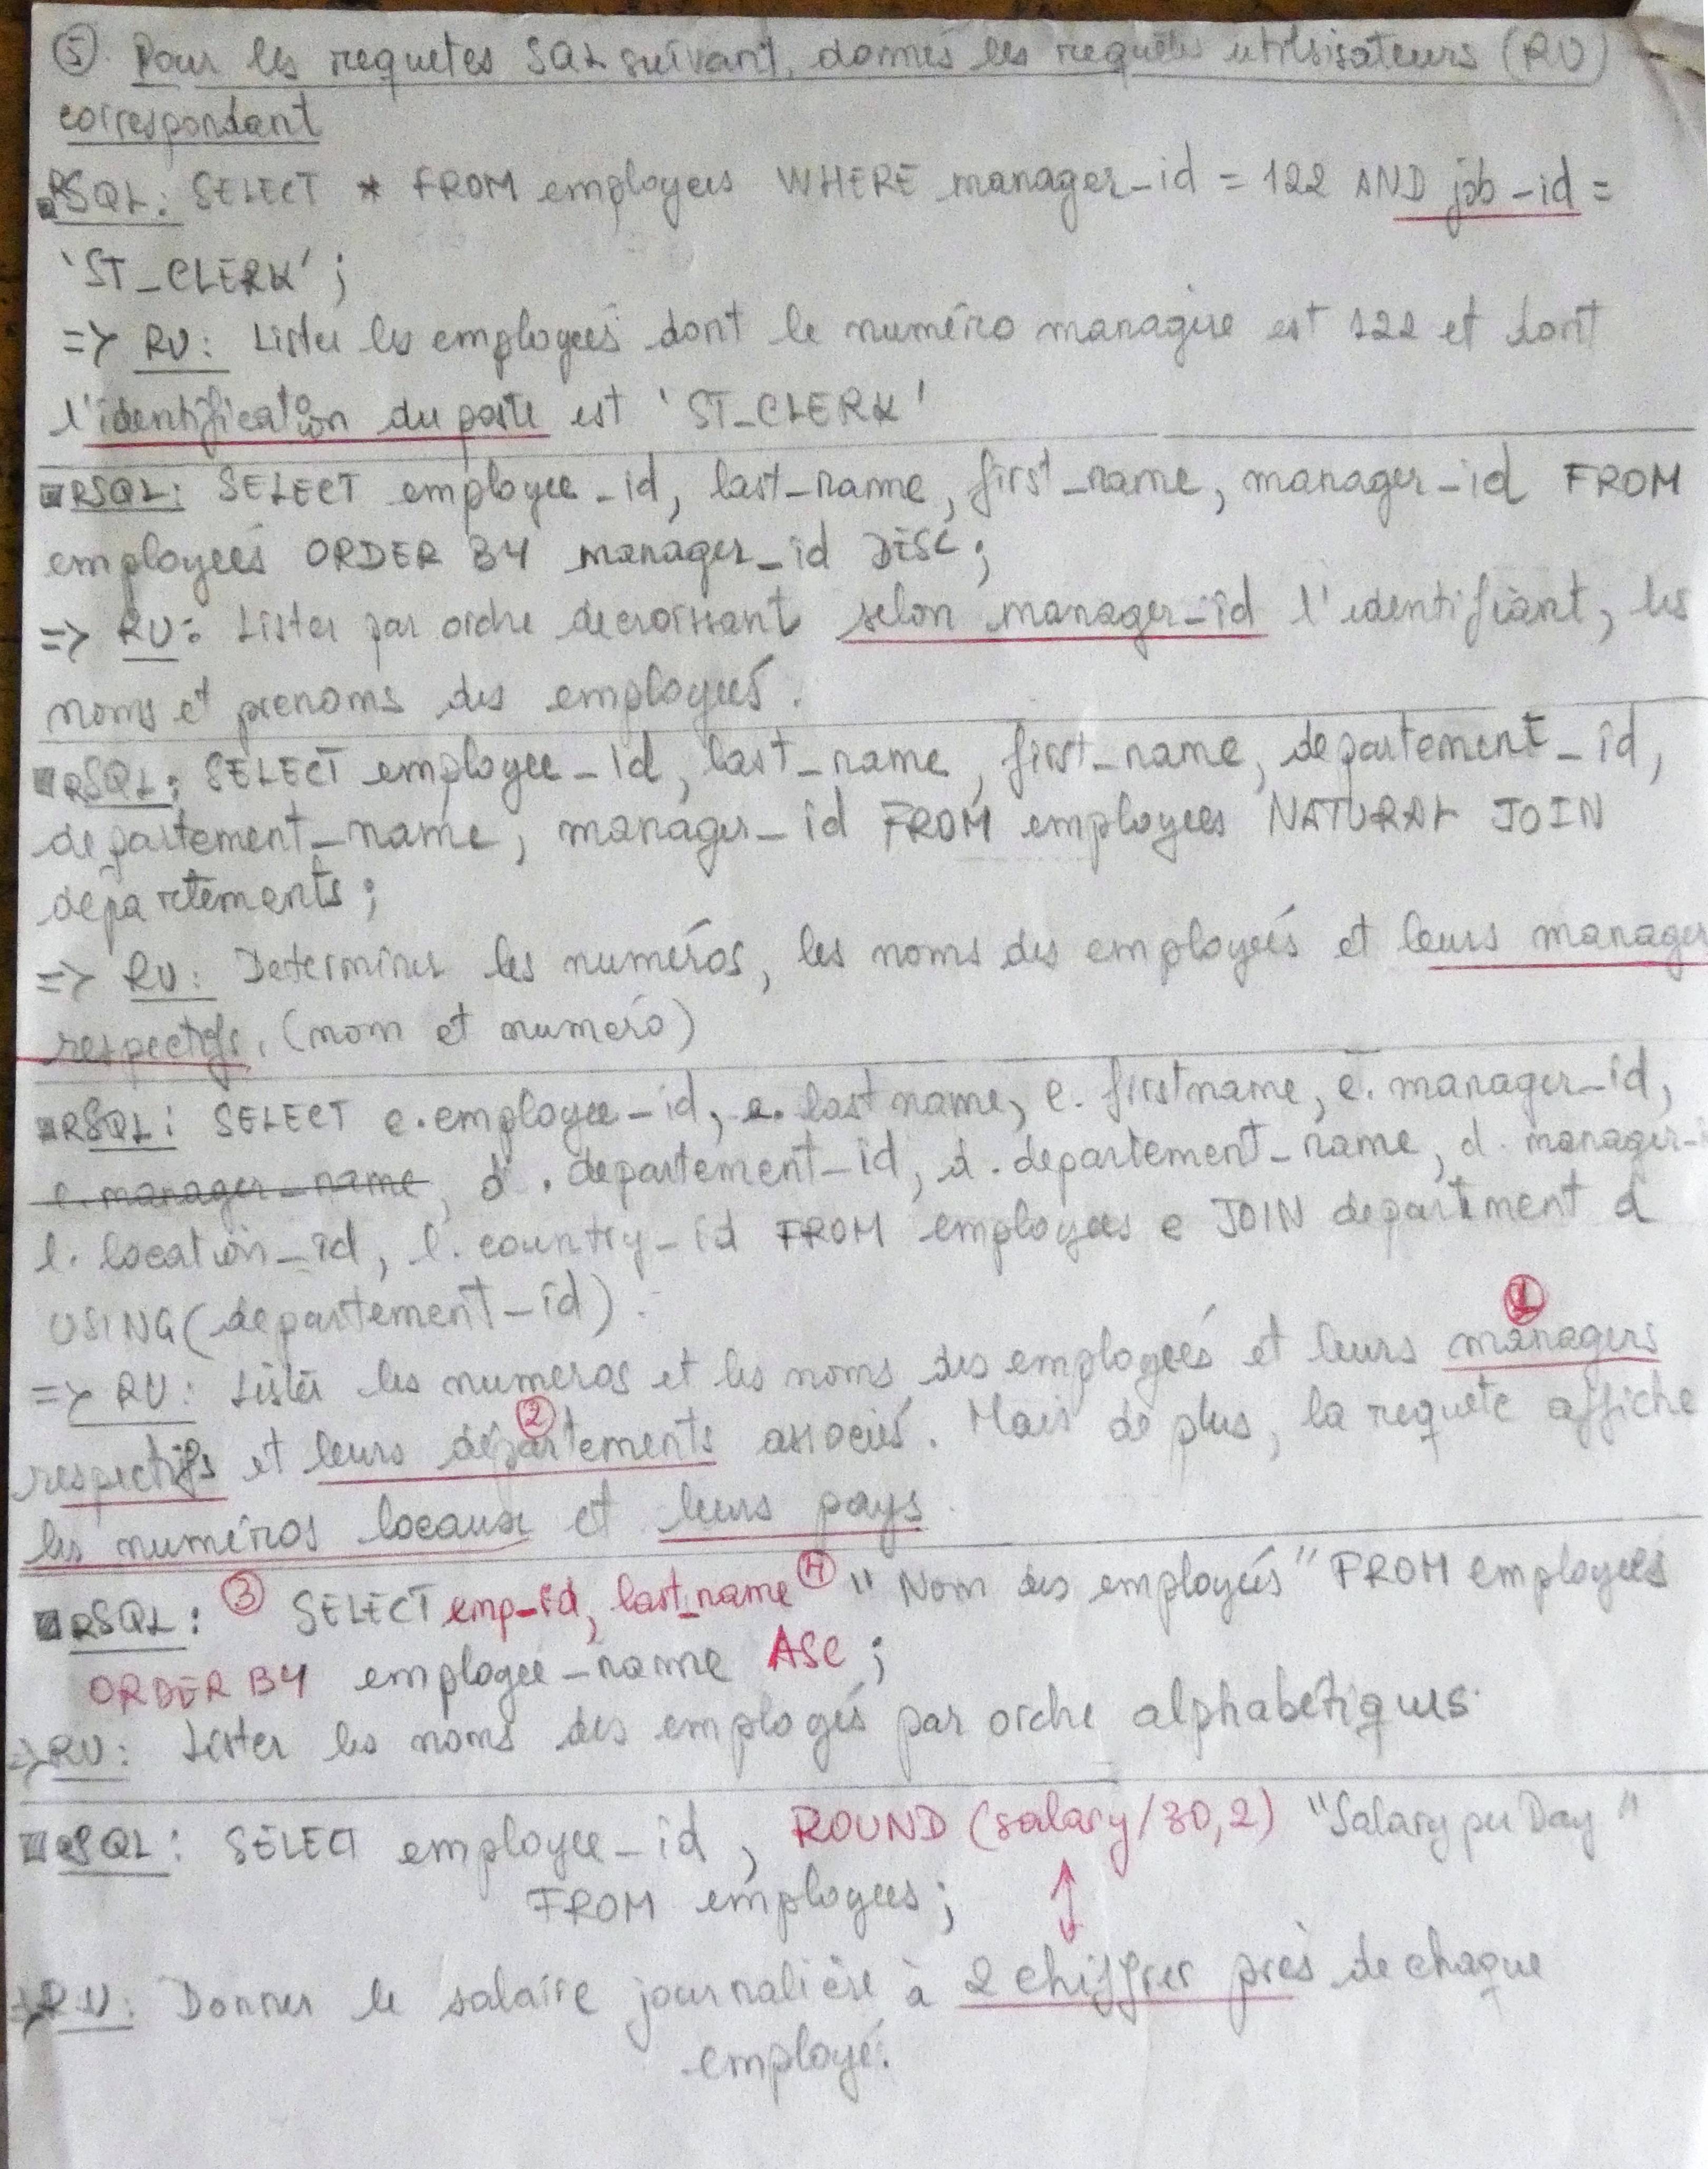 ⑤ Pour les requetes SQL suivant, donnés les requêtes utilsisateurs (RU)
correspondant
RSQL: SELECT * FROM employees WHERE manager_id = 122 AND job_id =
'ST_CLERK' ;
=> RU: Lister les employeés dont le numéro managire est 122 et dont
l'identification du poste est 'ST_CLERK'
RSQL: SELECT employee_id, last_name, first_name, manager_id FROM
employees ORDER BY manager_id DESC;
=> RU: Lister par ordre decroissant selon manager_id l'identifiant, les
noms et prenoms des employeés.
RSQL: SELECT employee_id, last_name, first_name, departement_id,
departement_name, manager_id FROM employees NATURAL JOIN
departements;
=> RU: Determiner les numéros, les noms des employeés et leurs manager
respectifs. (nom et numéro)
RSQL: SELECT e.employee_id, e.lastname, e.firstname, e.manager_id,
e.manager_name, d.departement_id, d.departement_name, d.manager_
l.location_id, l.country_id FROM employees e JOIN department d
USING(departement_id).
①
=> RU: Lister les numeros et les noms des employeés et leurs managers
②
respectifs et leurs départements associés. Mais de plus, la requête affiche
les numéros locaux et leurs pays.
RSQL: ③ SELECT emp_id, last_name ④ "Nom des employés" FROM employees
ORDER BY employee_name ASC;
=> RU: Lister les noms des employés par ordre alphabetiques.
RSQL: SELECT employee_id, ROUND (salary/30,2) "Salary per Day"
FROM employees;
=> RU: Donner le salaire journalière à 2 chiffres près de chaque
employé.